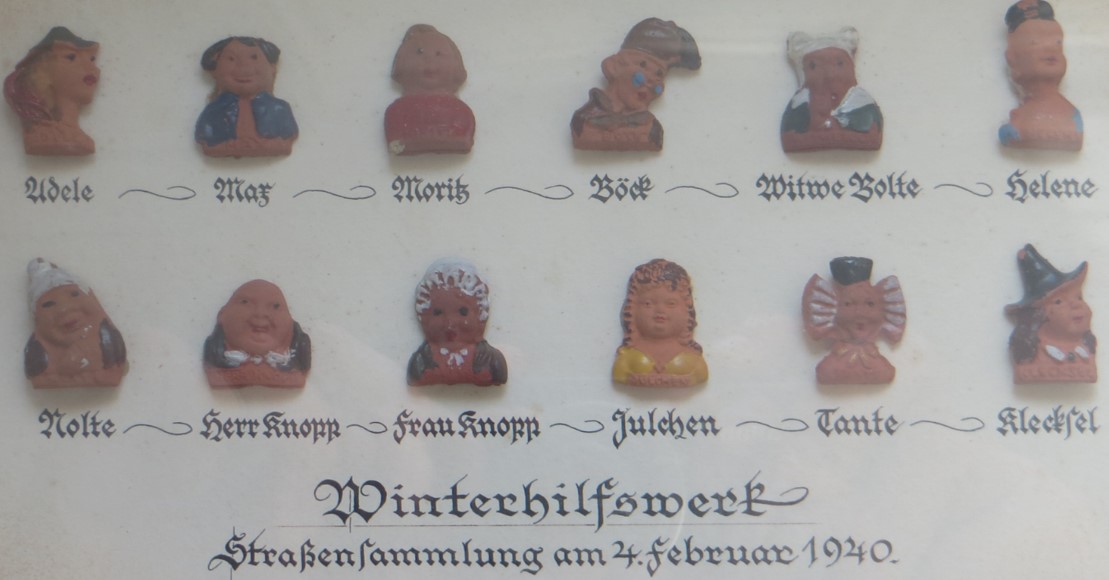 Adele Max Moritz Böck Witwe Bolte Helene
JULCHEN
Nolte Herr Knopp Frau Knopp Julchen Tante Klecksel
Winterhilfswerk
Straßensammlung am 4. Februar 1940.